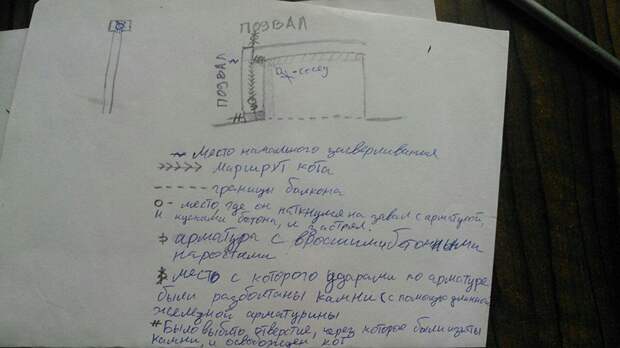 ПОДВАЛ
ПОДВАЛ
сосед
~ место начального засверливания
>>>>> маршрут кота
------ границы балкона
О - место, где он наткнулся на завал с арматурой,
кусками бетона, и застрял.
арматура с вросшими бетонными
наростами
место с которого ударами по арматуре
были разболтаны камни (с помощью длинной
железной арматурины
# Было выбито отверстие, через которое были изъяты
камни, и освобожден кот